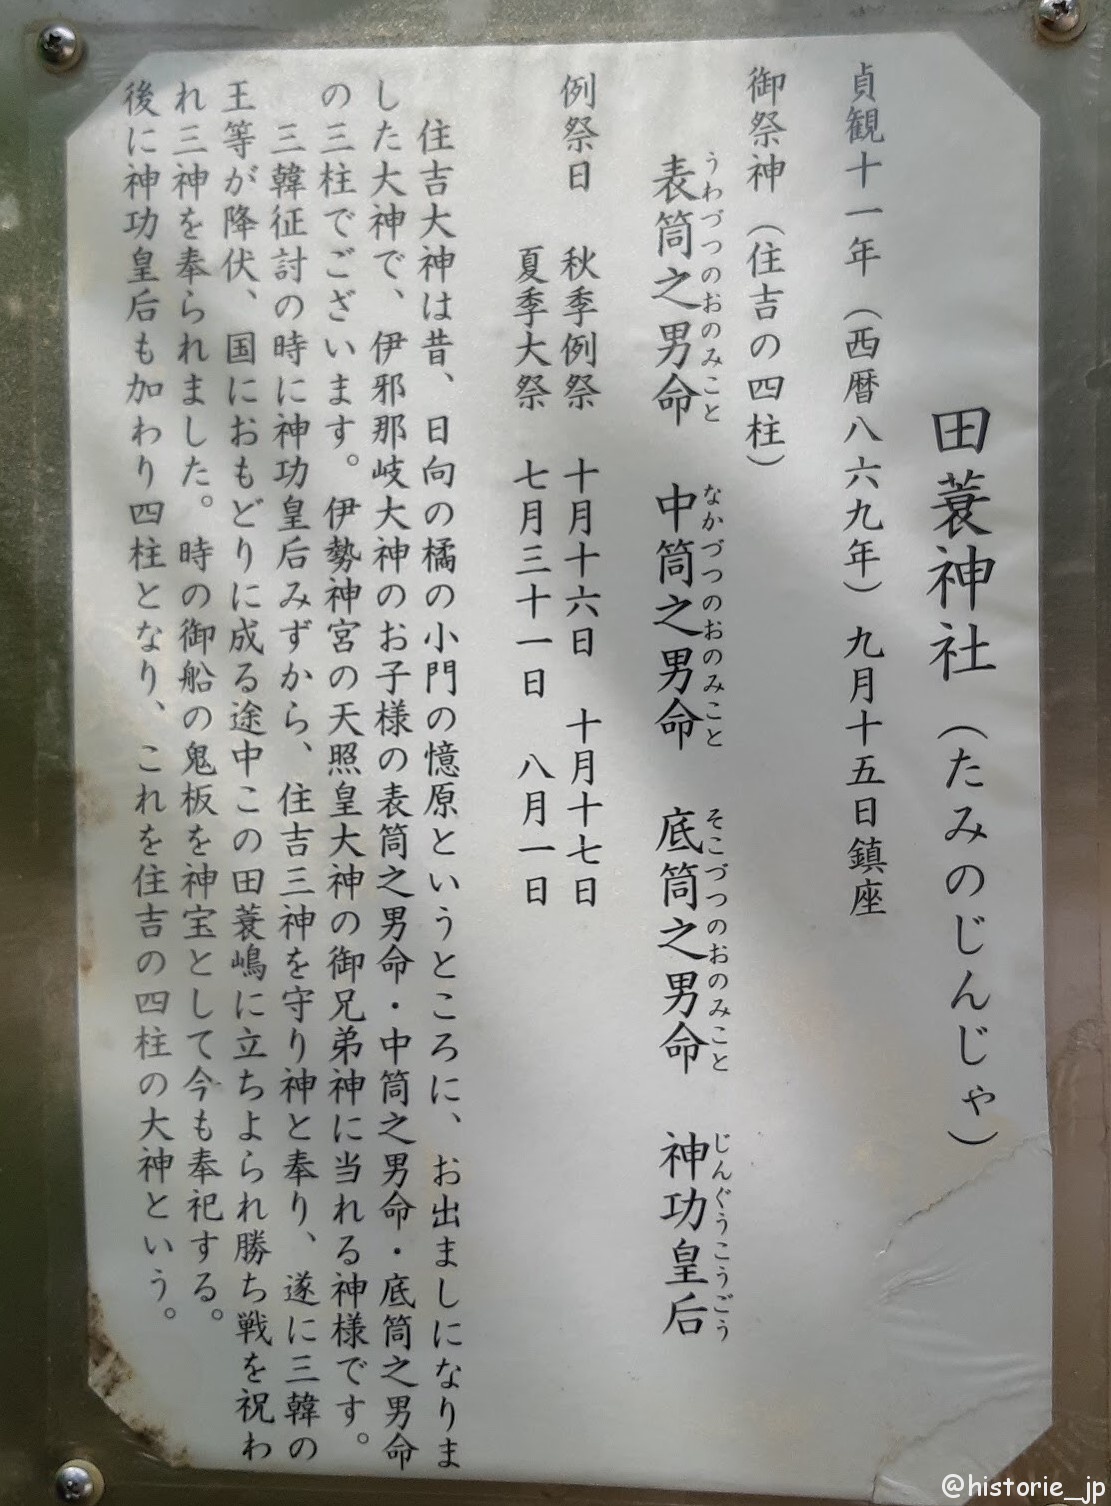 田蓑神社（たみのじんじゃ）
貞観十一年（西暦八六九年）九月十五日鎮座
御祭神（住吉の四柱）
うわづつのおのみこと なかづつのおのみこと そこづつのおのみこと じんぐうこうごう
表筒之男命 中筒之男命 底筒之男命 神功皇后
例祭日 秋季例祭 十月十六日 十月十七日
夏季大祭 七月三十一日 八月一日
住吉大神は昔、日向の橘の小門の憶原というところに、お出ましになりま
した大神で、伊邪那岐大神のお子様の表筒之男命・中筒之男命・底筒之男命
の三柱でございます。伊勢神宮の天照皇大神の御兄弟神に当れる神様です。
三韓征討の時に神功皇后みずから、住吉三神を守り神と奉り、遂に三韓の
王等が降伏、国におもどりに成る途中この田蓑嶋に立ちよられ勝ち戦を祝わ
れ三神を奉られました。時の御船の鬼板を神宝として今も奉祀する。
後に神功皇后も加わり四柱となり、これを住吉の四柱の大神という。
@historie_jp